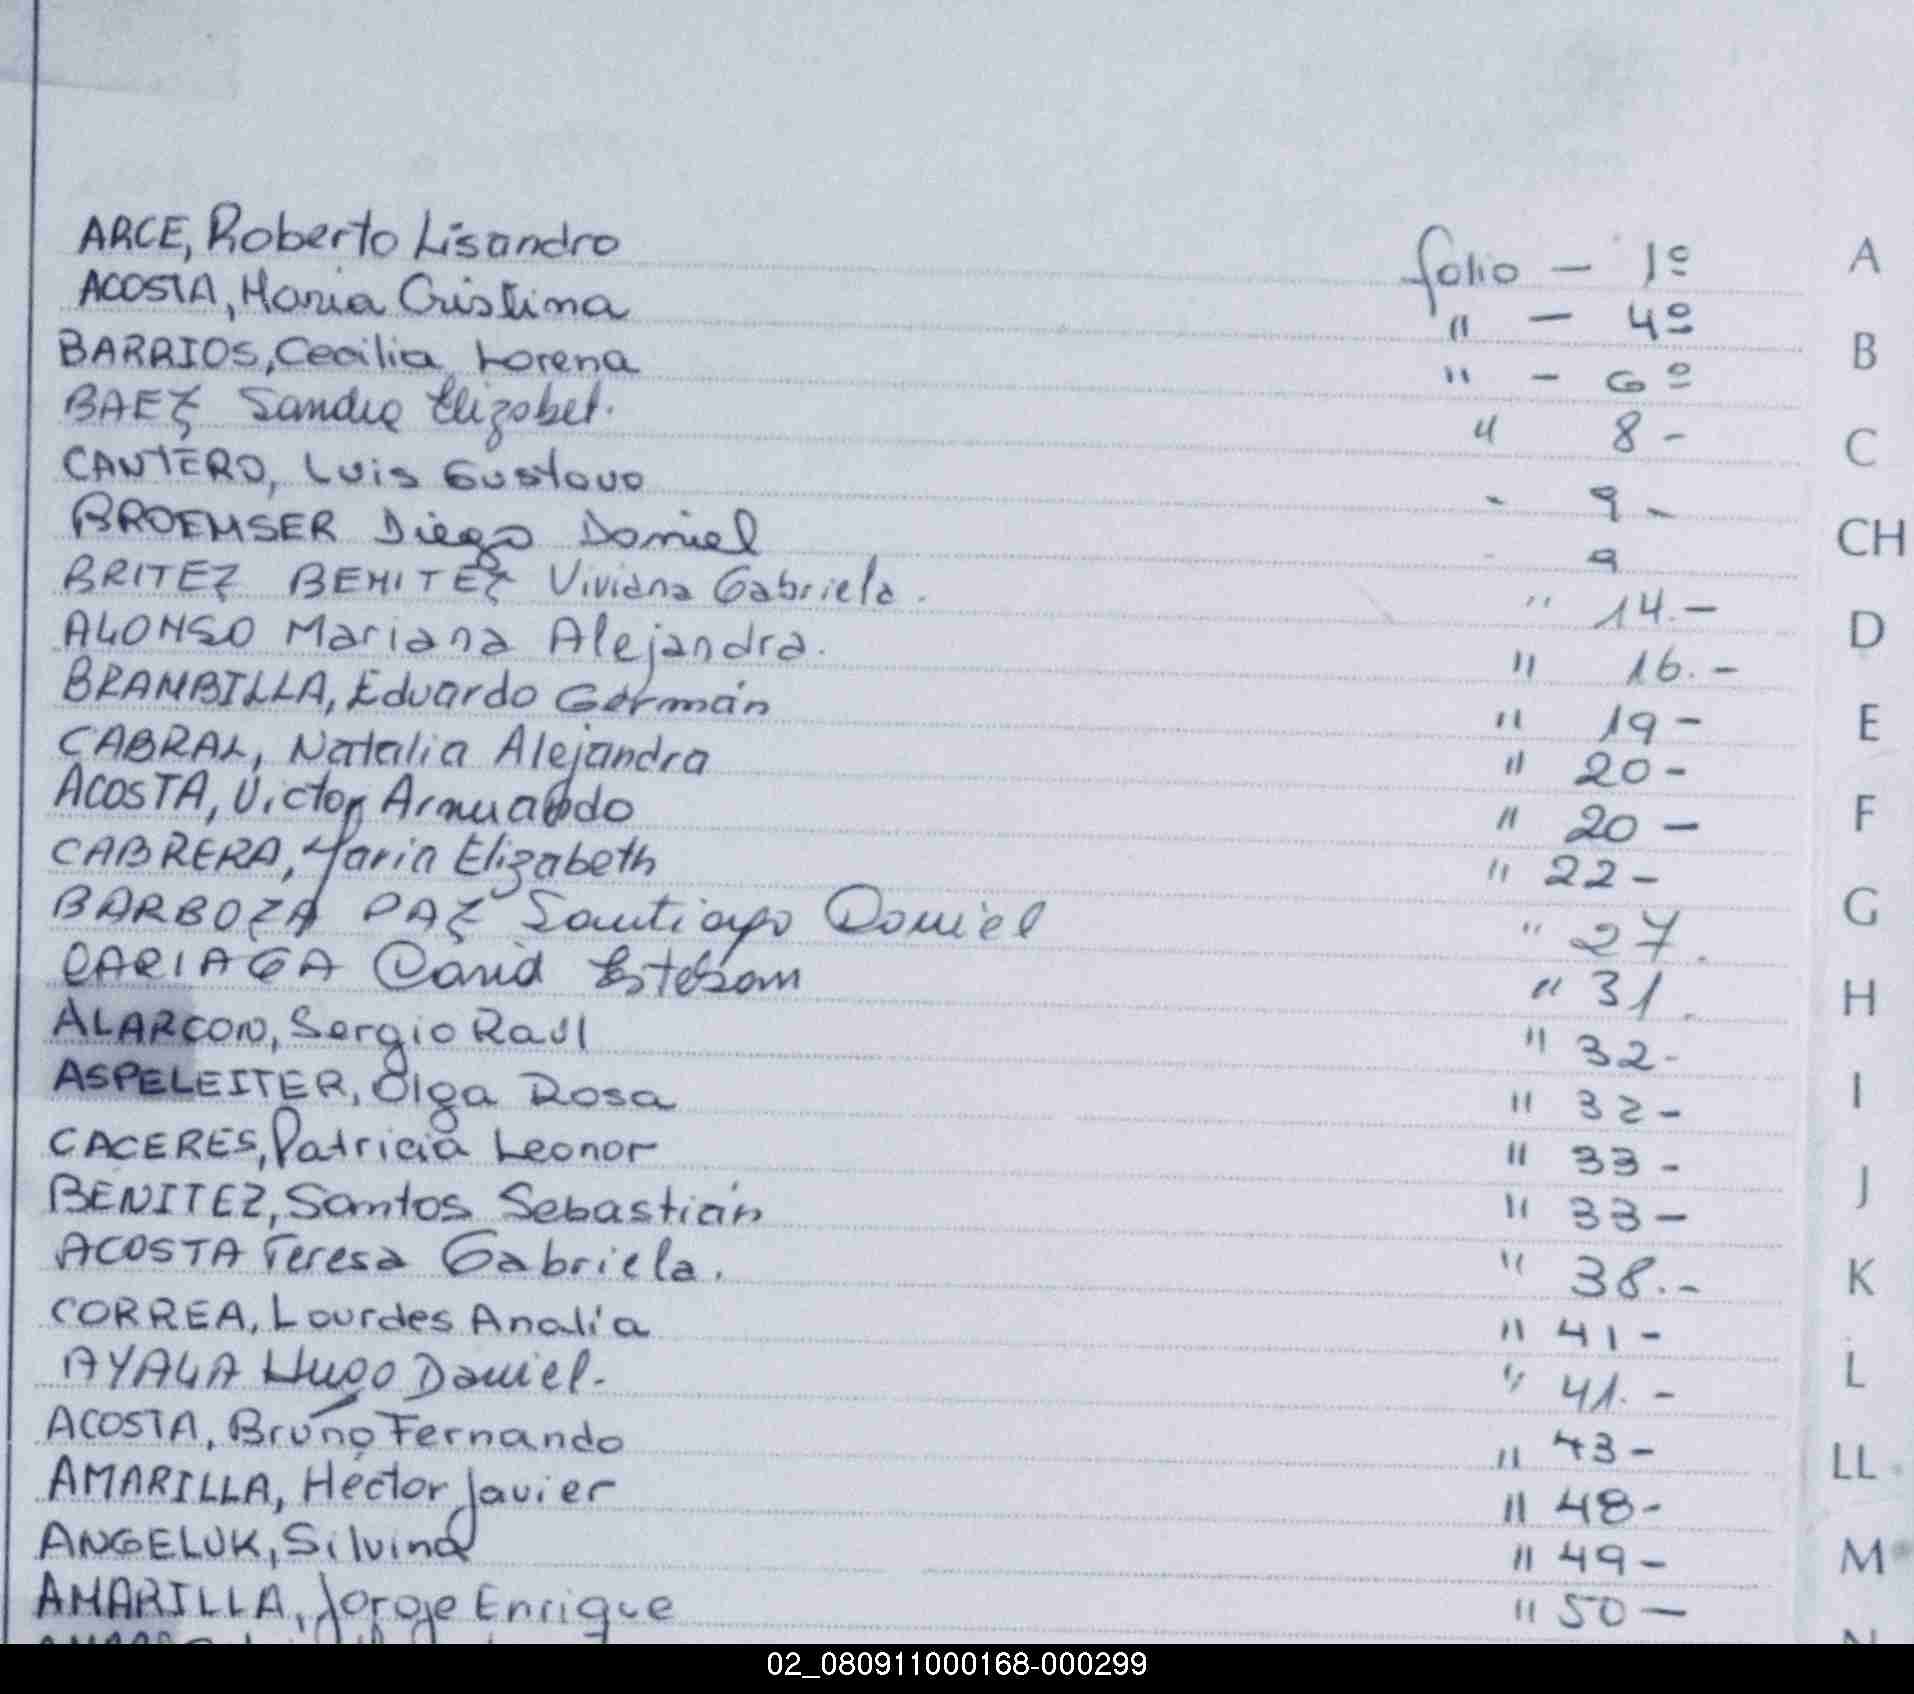 ARCE, Roberto Lisandro folio - 1º A
ACOSTA, Maria Cristina " - 4º
BARRIOS, Cecilia Lorena " - 6º B
BAEZ Sandra Elizabet. " 8 -
CANTERO, Luis Gustavo - 9 - C
BROEMSER Diego Daniel - 9 CH
BRITEZ BENITEZ Viviana Gabriela. " 14.-
ALONSO Mariana Alejandra. " 16.- D
BRAMBILLA, Eduardo Germán " 19 - E
CABRAL, Natalia Alejandra " 20 -
ACOSTA, Victor Armando " 20 - F
CABRERA, Maria Elizabeth " 22 -
BARBOZA PAZ Santiago Daniel " 27. G
CARIAGA David Esteban " 31. H
ALARCON, Sergio Raúl " 32 -
ASPELEITER, Olga Rosa " 32 - I
CACERES, Patricia Leonor " 33 -
BENITEZ, Santos Sebastián " 33 - J
ACOSTA Teresa Gabriela. " 38.- K
CORREA, Lourdes Analía " 41 -
AYALA Hugo Daniel. " 41. - L
ACOSTA, Bruno Fernando " 43 - LL
AMARILLA, Héctor Javier " 48 -
ANGELUK, Silvina " 49 - M
AMARILLA, Jorge Enrique " 50 -
02_080911000168-000299